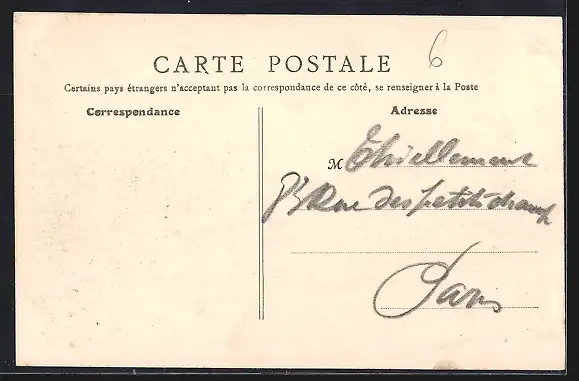 6
CARTE POSTALE
Certains pays étrangers n'acceptant pas la correspondance de ce côté, se renseigner à la Poste
Correspondance
Adresse
M Thiellement
Rue des petits champs
Paris